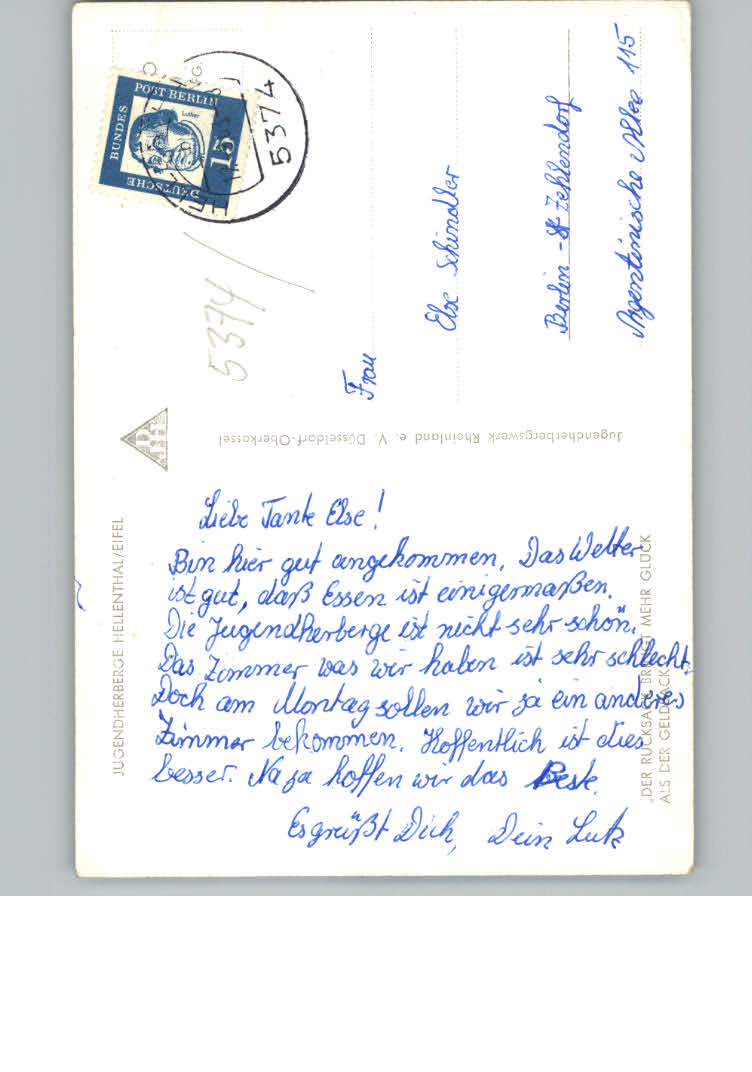 Liebe Tante Else!
Bin hier gut angekommen. Das Wetter
ist gut, daß Essen ist einigermaßen.
Die Jugendherberge ist nicht sehr schön.
Das Zimmer was wir haben ist sehr schlecht.
Doch am Montag sollen wir ja ein anderes
Zimmer bekommen. Hoffentlich ist dies
besser. Na ja hoffen wir das Beste.
Es grüßt Dich, Dein Lutz
Frau
Else Schindler
Berlin - Zehlendorf
Argentinische Allee 115
5374/
DEUTSCHE
BUNDES
POST BERLIN
Luther
15
5374
JUGENDHERBERGE HELLENTHAL/EIFEL
Jugendherbergswerk Rheinland e. V. Düsseldorf-Oberkassel
„DER RUCKSACK BRINGT MEHR GLÜCK
ALS DER GELDSACK